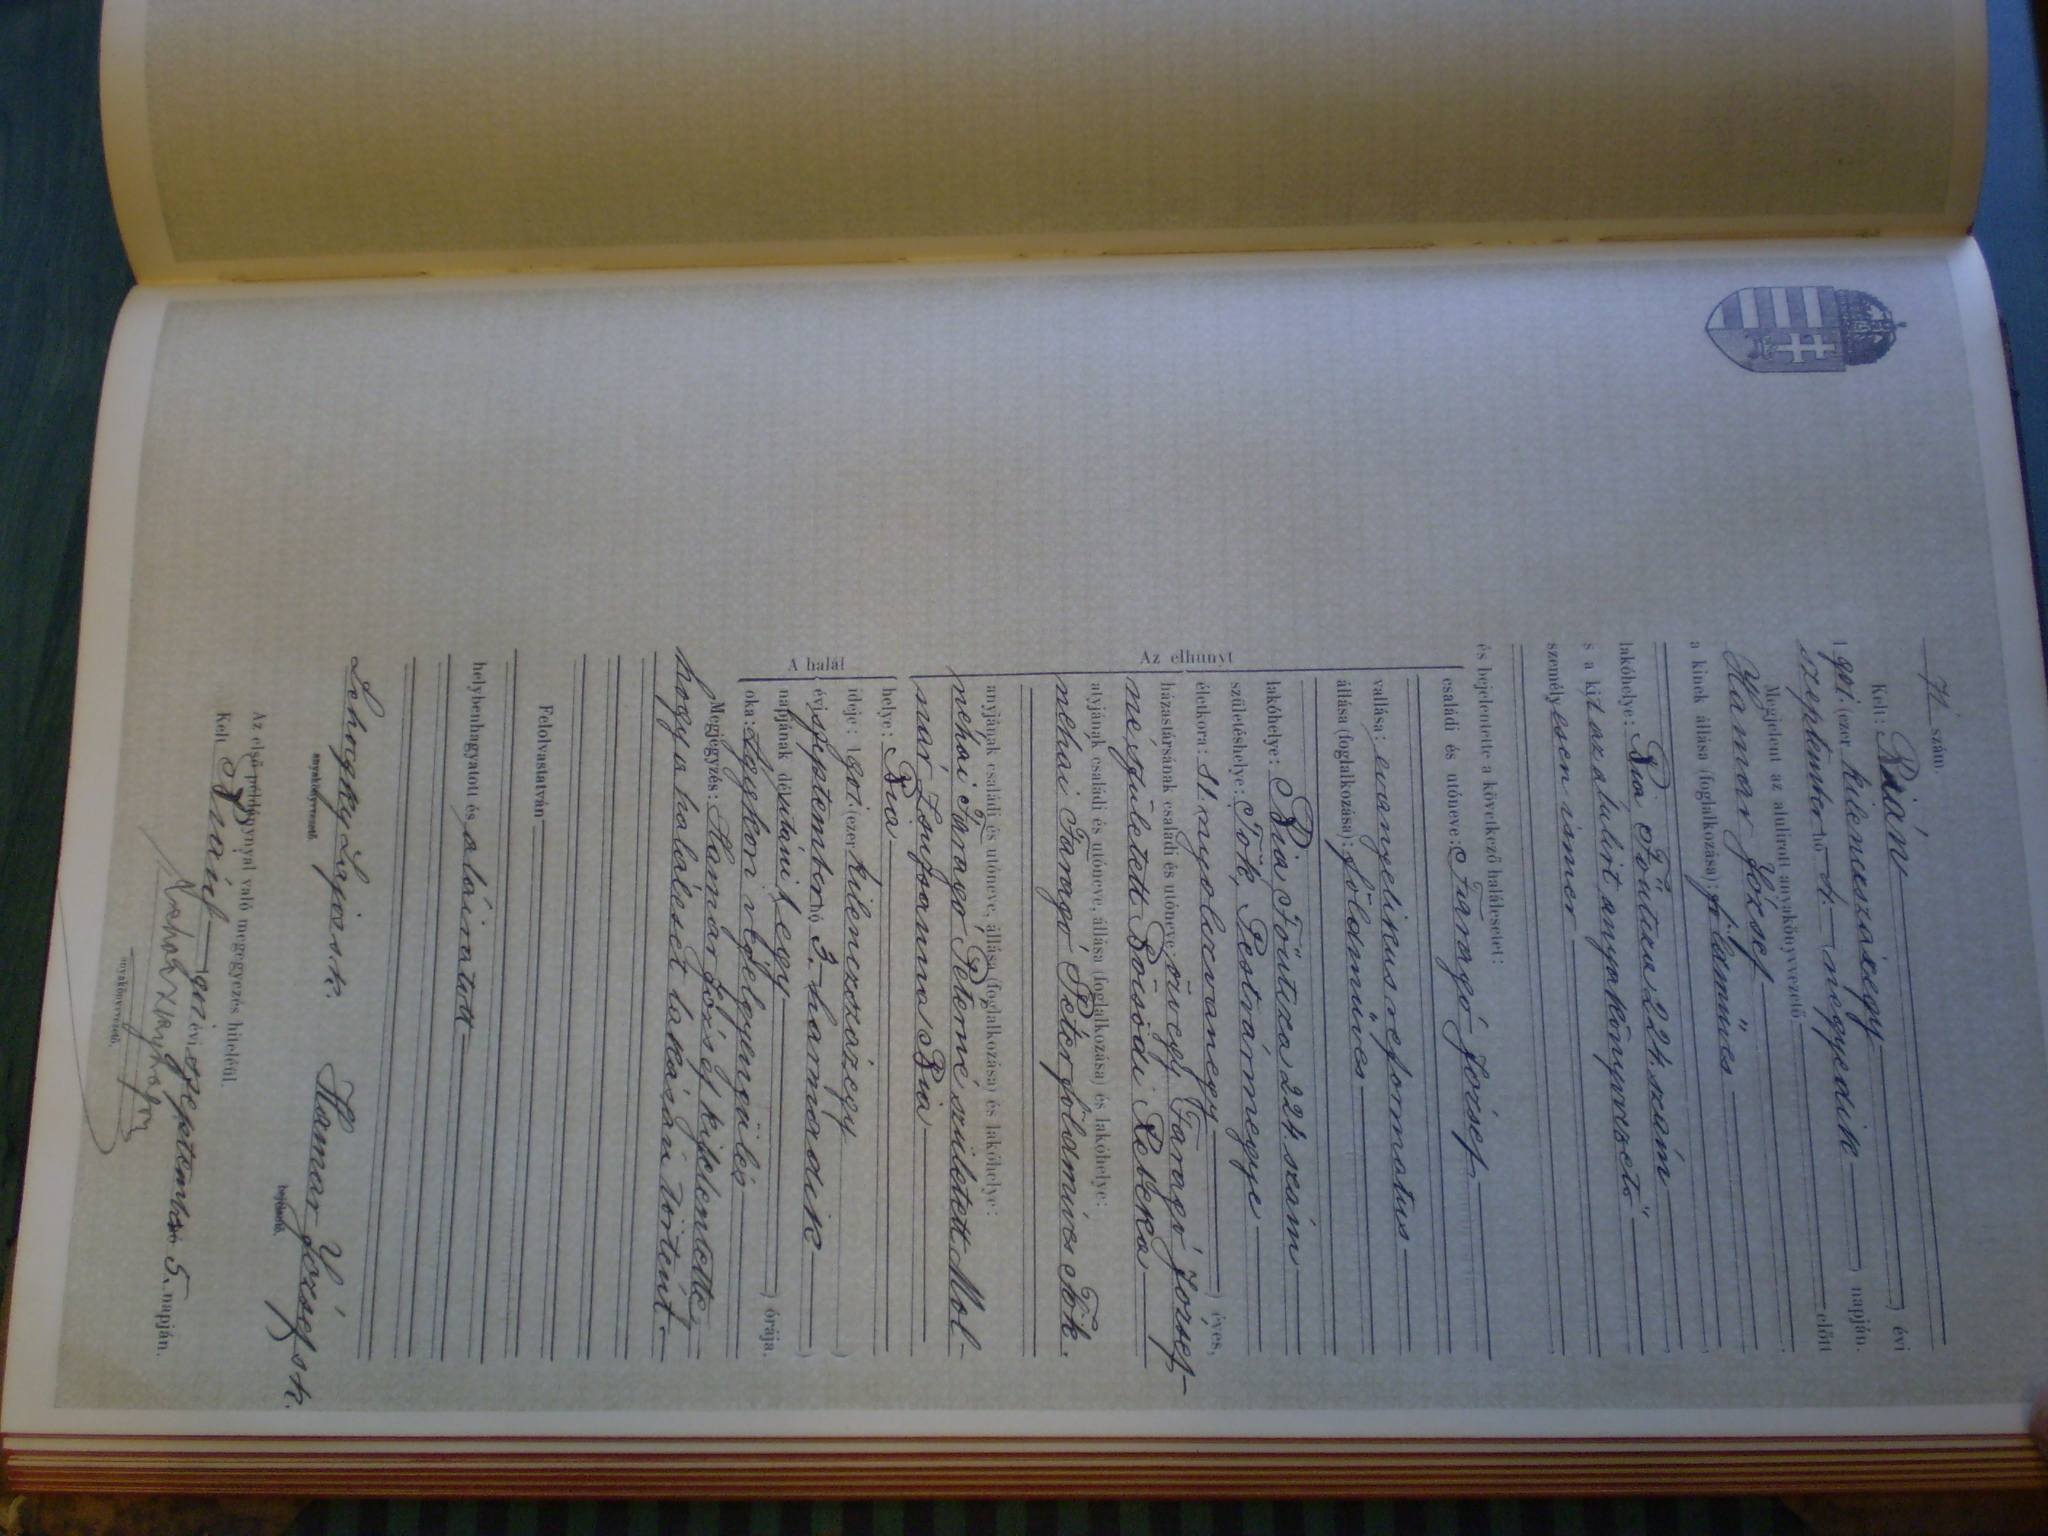 71 szám.
Kelt: Bián ) évi
1901. (ezer kilenczszázegy
szeptember hó 4. negyedik ) napján.
Megjelent az alulirott anyakönyvvezető előtt
Hamar József
a kinek állása (foglalkozása): földmüves
lakóhelye: Bia Főutcza 224. szám
s a kit az alulirt anyakönyvvezető
személyesen ismer
és bejelentette a következő halálesetet:
Az elhunyt
családi és utóneve: Faragó József
vallása: evangelikus reformatus
állása (foglalkozása): földmüves
lakóhelye: Bia, Főutcza 224. szám
születéshelye: Tök, Pestvármegye
életkora: 81. nyolczvanegy ) éves,
házastársának családi és utóneve: özvegy Faragó József-
né született Boisódi Rebeka
atyjának családi és utóneve, állása (foglalkozása) és lakóhelye:
néhai Faragó Péter földmüves Tök.
anyjának családi és utóneve, állása (foglalkozása) és lakóhelye:
néhai Faragó Péterné született Mol-
nár Zsuzsanna Bia
A halál
helye: Bia
ideje: 1901. (ezer kilenczszázegy )
évi szeptember hó 3. harmadik )
napjának délutáni 1 egy ) órája.
oka: Aggkori végelgyengülés
Megjegyzés: Hamar József kijelentette,
hogy a haláleset lakásán történt.
Felolvastatván
helybenhagyatott és aláiratott
Lehoczky Lajos s. k. Hamar József s k.
anyakönyvvezető. bejelentő.
Az első példánynyal való megegyezés hiteléül.
Kelt Bián 1901 évi szeptember hó 5. napján.
anyakönyvvezető.